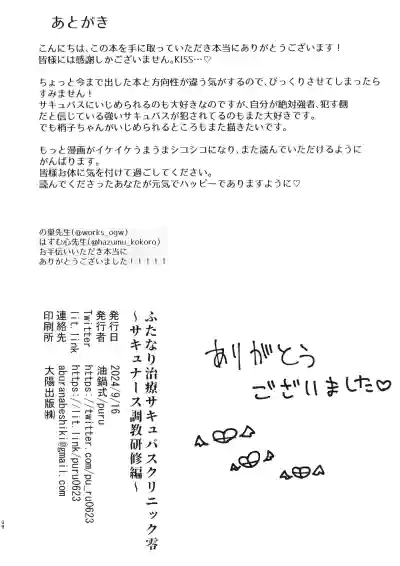 あとがき
こんにちは、この本を手に取っていただき本当にありがとうございます!
皆様には感謝しかございません。KISS…♡
ちょっと今まで出した本と方向性が違う気がするので、びっくりさせてしまったら
すみません!
サキュバスにいじめられるのも大好きなのですが、自分が絶対強者、犯す側
だと信じている強いサキュバスが犯されてるのもまた大好きです。
でも梢子ちゃんがいじめられるところもまた描きたいです。
もっと漫画がイケイケうまうまシコシコになり、また読んでいただけるように
がんばります。
皆様お体に気を付けて過ごしてください。
読んでくださったあなたが元気でハッピーでありますように♡
の巣先生(@works_ogw)
はずむ心先生(@hazumu_kokoro)
お手伝いいただき本当に
ありがとうございました!!!!!
ふたなり治療サキュバスクリニック零
~サキュナース調教研修編~
発行日 2024/9/16
発行者 油鍋弐/puru
Twitter https://twitter.com/pu_ru0623
lit.link https://lit.link/puru0623
連絡先 aburanabeshiki@gmail.com
印刷所 太陽出版㈱
ありがとう
ございました♡